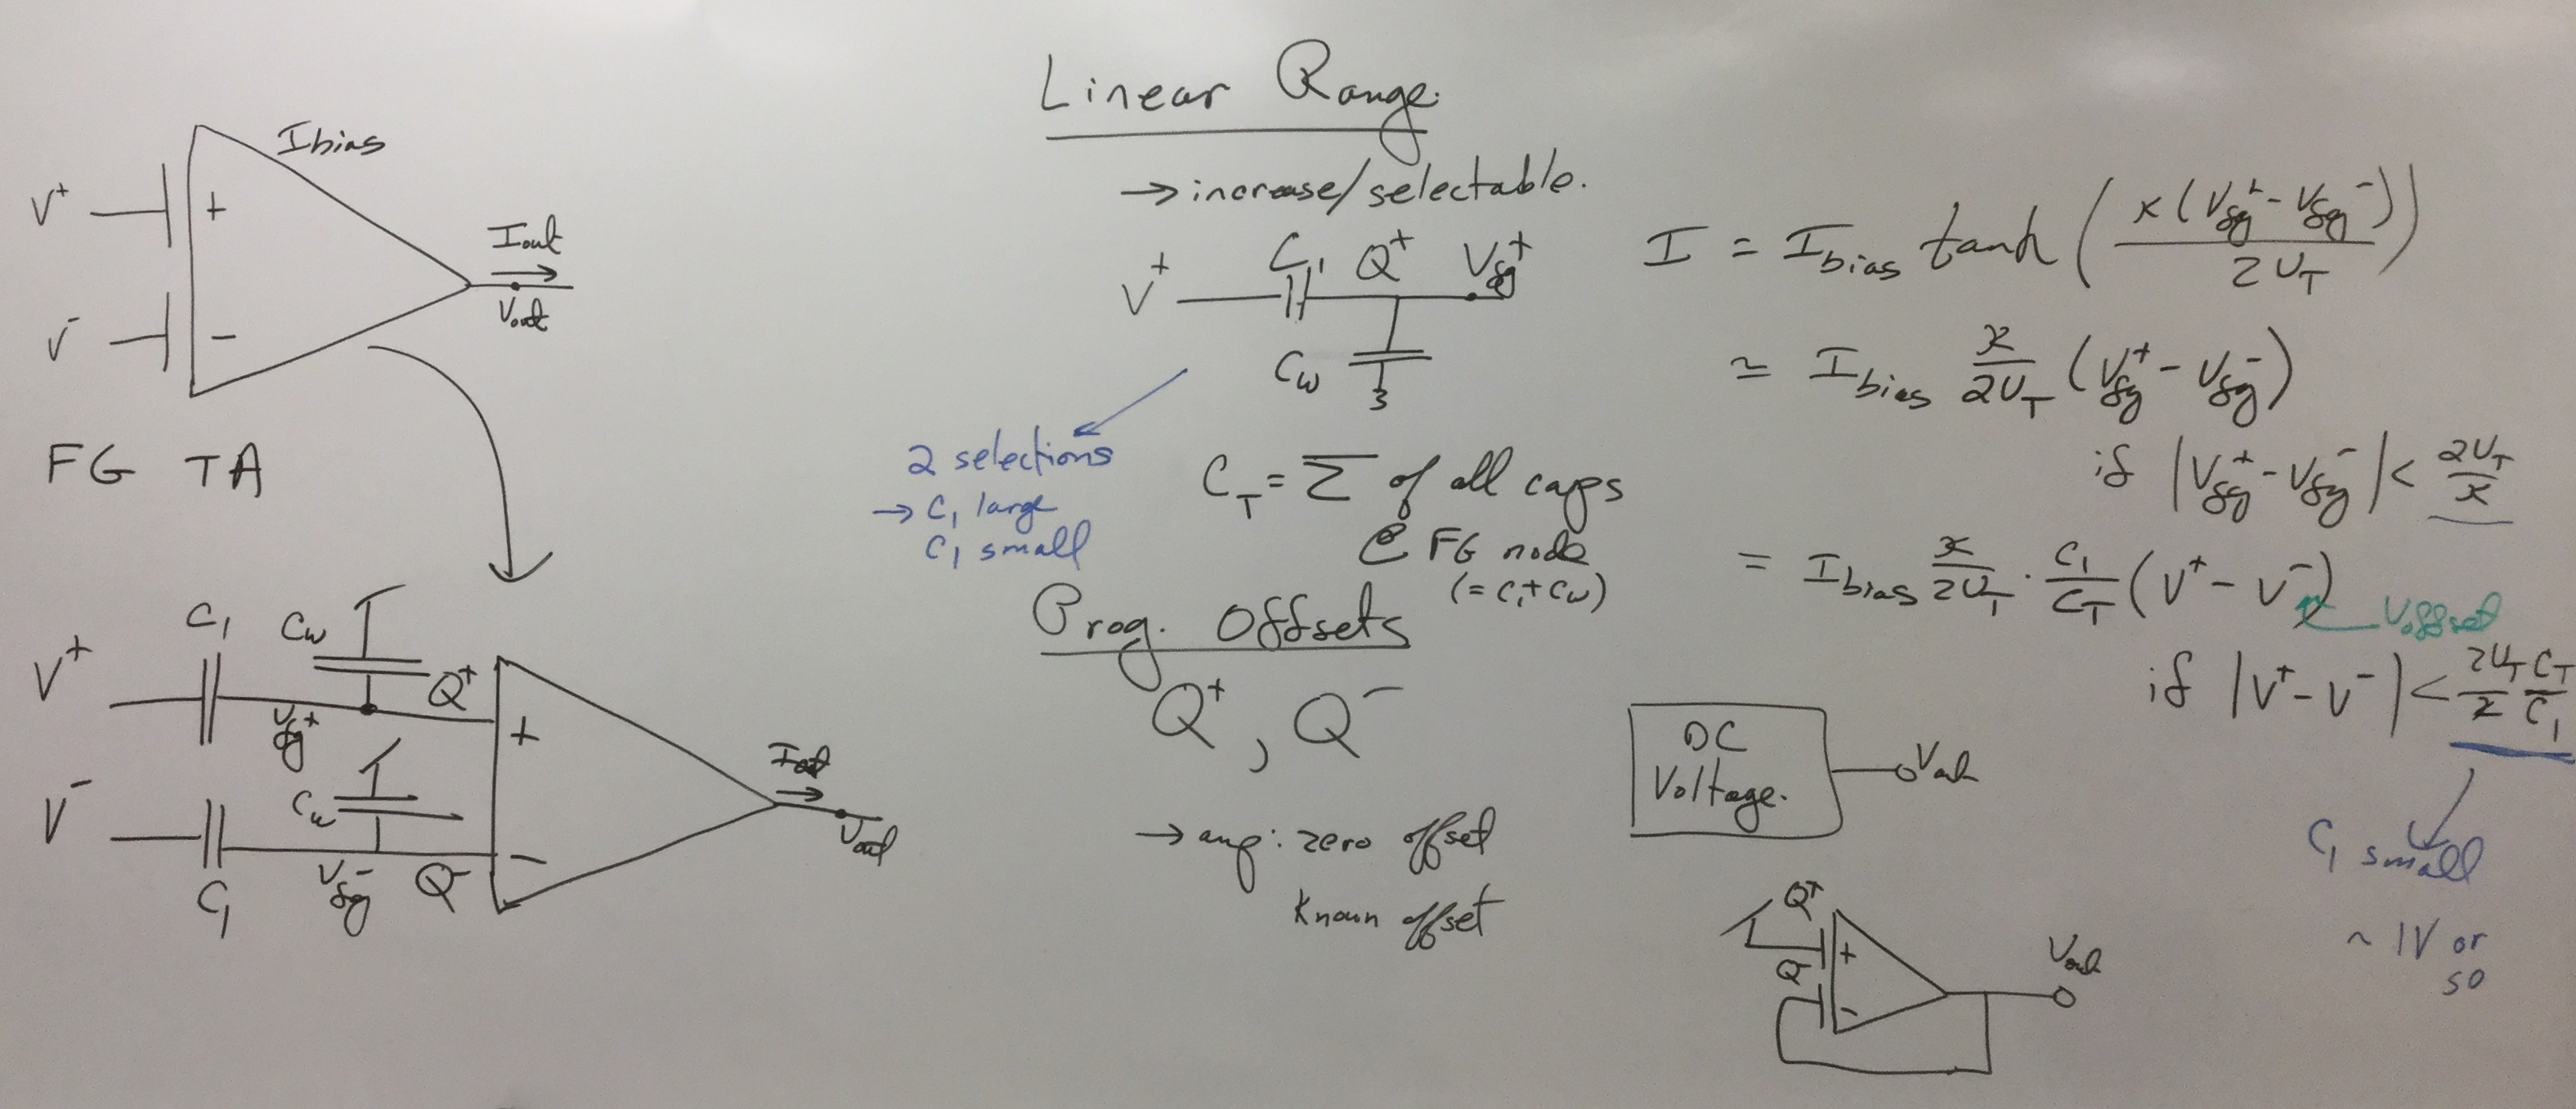 Ibias
V⁺
+
Iout
Vout
V⁻
−
FG TA
C₁
Cw
V⁺
Q⁺
Vfg⁺
+
Iout
V⁻
Cw
Vout
−
C₁
Vfg⁻
Q⁻
Linear Range.
→ increase/selectable.
V⁺ C₁ Q⁺ Vfg⁺
Cw
2 selections
→ C₁ large
C₁ small
C_T = Σ of all caps
@ FG node
(= C₁ + Cw)
Prog. Offsets
Q⁺, Q⁻
→ amp: zero offset
Known offset
I = Ibias tanh ( κ(Vfg⁺ - Vfg⁻) / 2U_T )
≃ Ibias κ/2U_T (Vfg⁺ - Vfg⁻)
if |Vfg⁺ - Vfg⁻| < 2U_T/κ
= Ibias κ/2U_T · C₁/C_T (V⁺ - V⁻)
Voffset
if |V⁺ - V⁻| < 2U_T/κ C_T/C₁
C₁ small
~ 1V or
so
DC
Voltage.
Vout
Q⁺
+
Q⁻
−
Vout